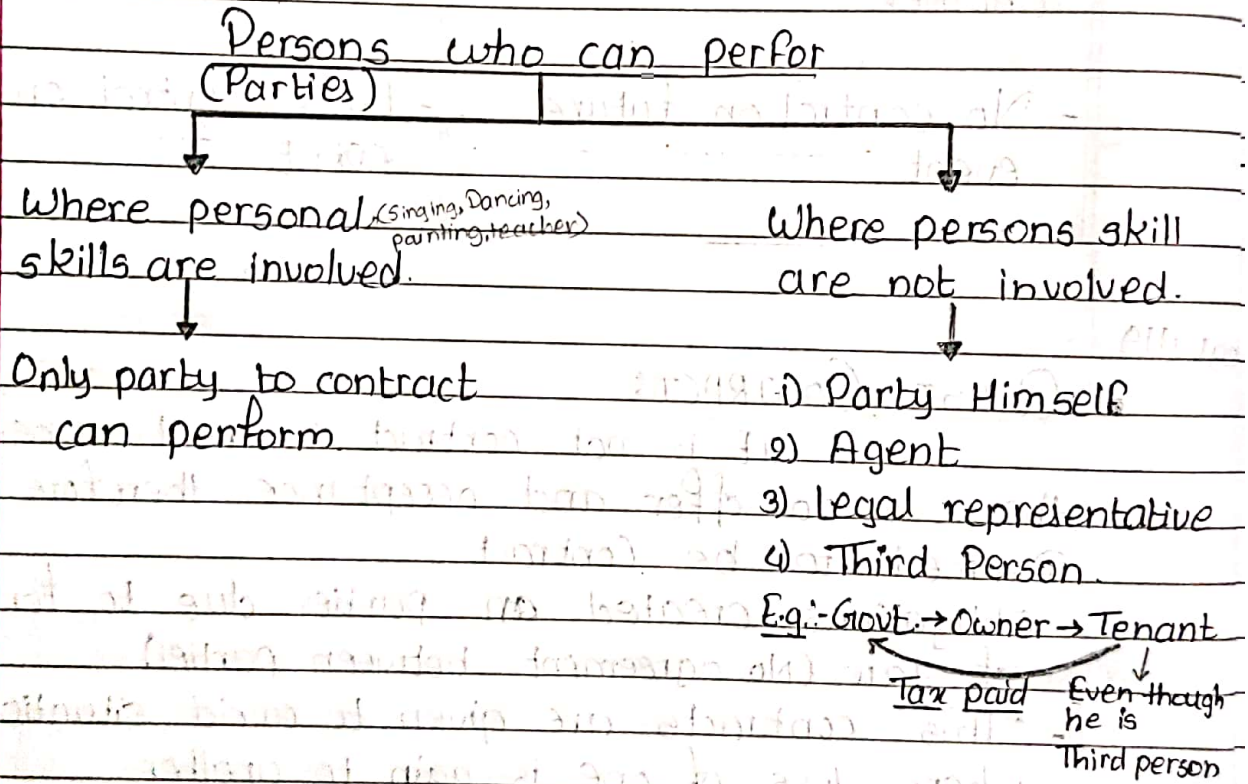 Persons who can perfor
(Parties)
Where personal (singing, Dancing,
painting, teacher)
skills are involved.
Only party to contract
can perform
Where persons skill
are not involved.
1) Party Himself
2) Agent
3) Legal representative
4) Third Person.
E.g:- Govt. → Owner → Tenant
Tax paid
Even though
he is
Third person